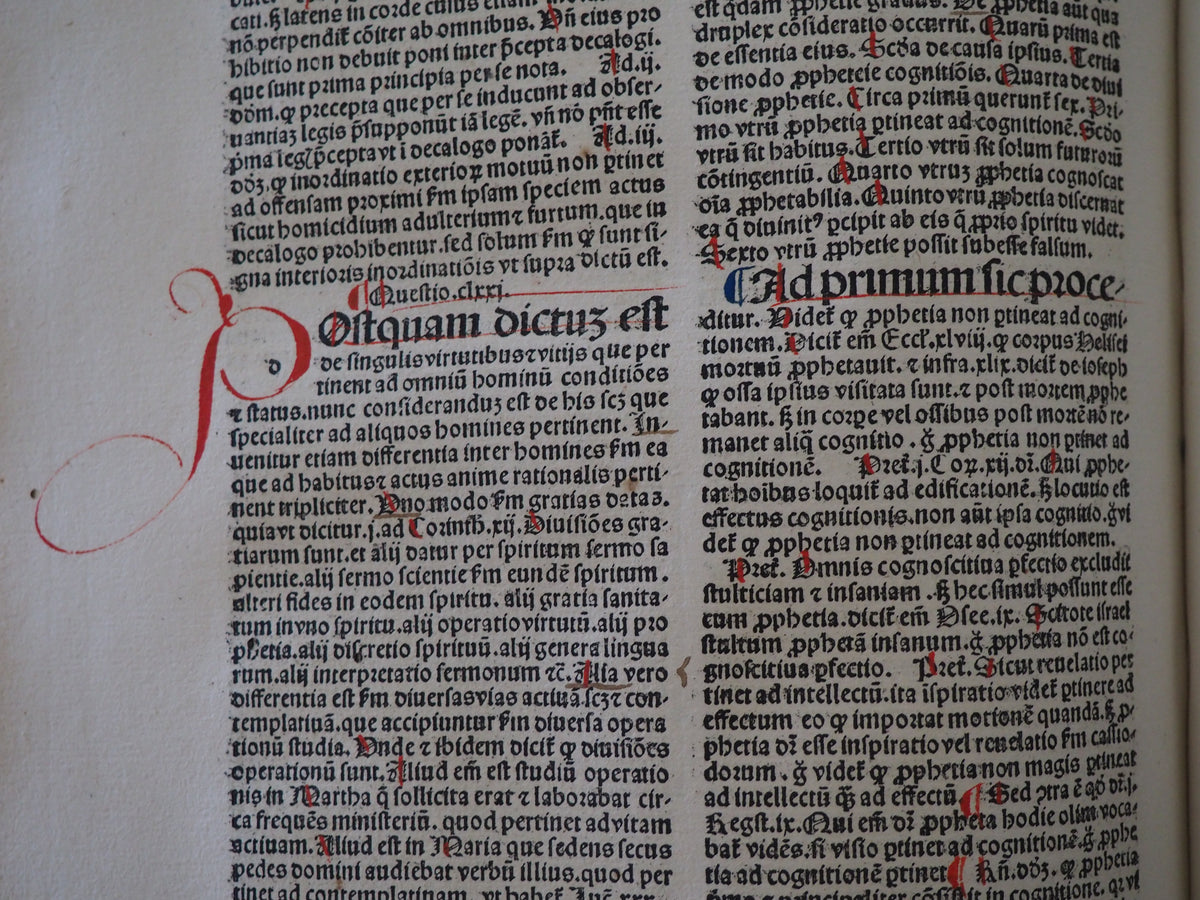 cati. sꝫ latens in corde cuius etiam
nō perpendit̃ cōiter ab omnibus. Vñ eius pro
hibitio non debuit poni inter p̄cepta decalogi.
que sunt prima principia per se nota. Ad .ij.
dōm. ꝙ precepta que per se inducunt ad obser-
uantiaꝫ legis p̄supponūt iā legē. vñ nō pn̄t esse
p̄ma leg̃ p̄cepta vt i decalogo ponāt̃. Ad .iij.
dōꝫ. ꝙ inordinatio exterioꝝ motuū non ꝑtinet
ad offensam proximi ẜm ipsam speciem actus
sicut homicidium adulterium ⁊ furtum. que in
decalogo prohibentur. sed solum ẜm ꝙ sunt si-
gna interioris inordinatiōis vt supra dictū est.
¶ Questio .clxxj.
POstquam dictuꝫ est
de singulis virtutibus ⁊ vitijs que per
tinent ad omniū hominū conditiōes
⁊ status. nunc consideranduꝫ est de his scꝫ que
specialiter ad aliquos homines pertinent. In-
uenitur etiam differentia inter homines ẜm ea
que ad habitus ⁊ actus anime rationalis perti-
nent tripliciter. Vno modo ẜm gratias dataꝫ.
quia vt dicitur .j. ad Corinth. xij. Diuisiōes gra-
tiarum sunt. et alij datur per spiritum sermo sa
pientie. alij sermo scientie ẜm eundē spiritum.
alteri fides in eodem spiritu. alij gratia sanita-
tum in vno spiritu. alij operatio virtutū. alij pro
phetia. alij discretio spirituū. alij genera lingua
rum. alij interpretatio sermonum ⁊c̄. Alia vero
differentia est ẜm diuersas vias actiuā. scꝫ ⁊ con-
templatiuā. que accipiuntur ẜm diuersa opera
tionū studia. Vnde ⁊ ibidem dicit̃ ꝙ diuisiōes
operationū sunt. Aliud em̄ est studiū operatio
nis in Martha q̄ sollicita erat ⁊ laborabat cir-
ca frequēs ministeriū. quod pertinet ad vitam
actiuam. Aliud est in Maria que sedens secus
pedes domini audiebat verbū illius. quod per
tinet ad contemplatinam. vt habet̃ Luc̄ xxx.
est qdam ꝓphetie gradus. De ꝓphetia aūt qua
druplex cōsideratio occurrit. Quarū prima est
de essentia eius. Scd̄a de causa ipsius. Tertia
de modo ꝓpheteie cognitiōis. Quarta de diui
sione ꝓphetie. Circa primū querunt̃ sex. Pri-
mo vtrū ꝓphetia ꝑtineat ad cognitionē. Scd̄o
vtrū sit habitus. Tertio vtrū sit solum futurorū
cōtingentiū. Quarto vtruꝫ ꝓphetia cognoscat
oīa ꝓphetabilia. Quinto vtrū ꝓphetia discernat
ea q̄ diuinitꝰ ꝑcipit ab eis q̄ ꝓprio spiritu videt.
Sexto vtrū ꝓphetie possit subesse falsum.
¶ Ad primum sic proce-
ditur. Videt̃ ꝙ ꝓphetia non ꝑtineat ad cogni-
tionem. Dicit̃ em̄ Eccl̃. xlviij. ꝙ corpus Helisei
mortuū ꝓphetauit. ⁊ infra. xlix. dicit̃ de ioseph
ꝙ ossa ipsius visitata sunt. ⁊ post mortem ꝓphe
tabant. sꝫ in corꝑe vel ossibus post mortē nō re-
manet aliq̄ cognitio. g̊ ꝓphetia non ꝑtinet ad
cognitionē. Pret̃. j. Coꝝ. xij. dr̄. Qui ꝓphe-
tat hoībus loquit̃ ad edificationē. sꝫ locutio est
effectus cognitionis. non aūt ipsa cognitio. g̊ vi
det̃ ꝙ ꝓphetia non ꝑtineat ad cognitionem.
Pret̃. Omnis cognoscitiua ꝑfectio excludit
stulticiam ⁊ insaniam. sꝫ hec simul possunt esse
cum ꝓphetia. dicit̃ em̄ Osee. ix. Scitote israel
stultum ꝓphetā insanum. g̊ ꝓphetia nō est co-
gnoscitiua ꝑfectio. Pret̃. Sicut reuelatio per
tinet ad intellectū. ita īspiratio videt̃ ꝑtinere ad
effectum eo ꝙ importat motionē quandā. sꝫ ꝓ-
phetia dr̄ esse inspiratio vel reuelatio ẜm cassio-
dorum. g̊ videt̃ ꝙ ꝓphetia non magis ꝑtineat
ad intellectū qꝫ̄ ad effectū ¶ Sed ꝯtra ē qd̄ dr̄. j.
Regꝫ. ix. Qui em̄ dr̄ ꝓpheta hodie olim voca-
bat̃ vidēs. si visio ꝑtinet ad cognitionē. g̊ ꝓphe
tia ad cognitionē ꝑtinet ¶ Rñ. dōꝫ. ꝙ ꝓphetia